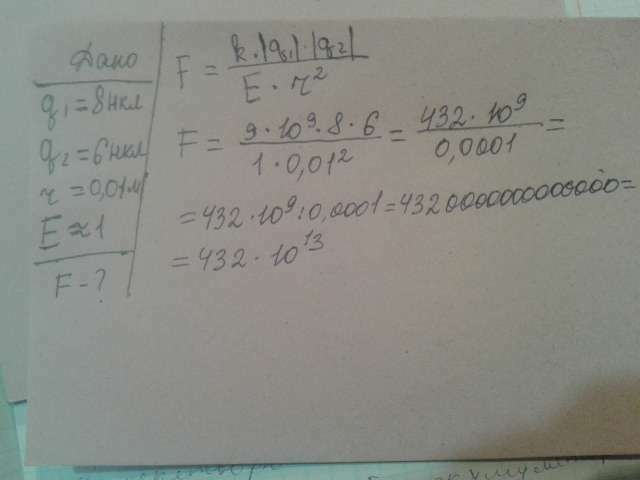 Дано
q₁ = 8 нкл
q₂ = 6 нкл
r = 0,01 м
E ≈ 1
F - ?
F = k·|q₁|·|q₂| / E·r²
F = 9·10⁹·8·6 / 1·0,01² = 432·10⁹ / 0,0001 =
= 432·10⁹:0,0001 = 4320000000000000 =
= 432·10¹³